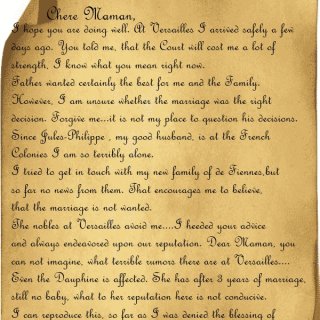 Chere Maman,
I hope you are doing well. At Versailles I arrived safely a few
days ago. You told me, that the Court will cost me a lot of
strength, I know what you mean right now.
Father wanted certainly the best for me and the Family.
However, I am unsure whether the marriage was the right
decision. Forgive me...it is not my place to question his decisions.
Since Jules-Philippe , my good husband, is at the French
Colonies I am so terribly alone.
I tried to get in touch with my new family of de Fiennes,but
so far no news from them. That encourages me to believe,
that the marriage is not wanted.
The nobles at Versailles avoid me....I heeded your advice
and always endeavored upon our reputation. Dear Maman, you
can not imagine, what terrible rumors there are at Versailles....
Even the Dauphine is affected. She has after 3 years of marriage,
still no baby, what to her reputation here is not conducive.
I can reproduce this, so far as I was denied the blessing of